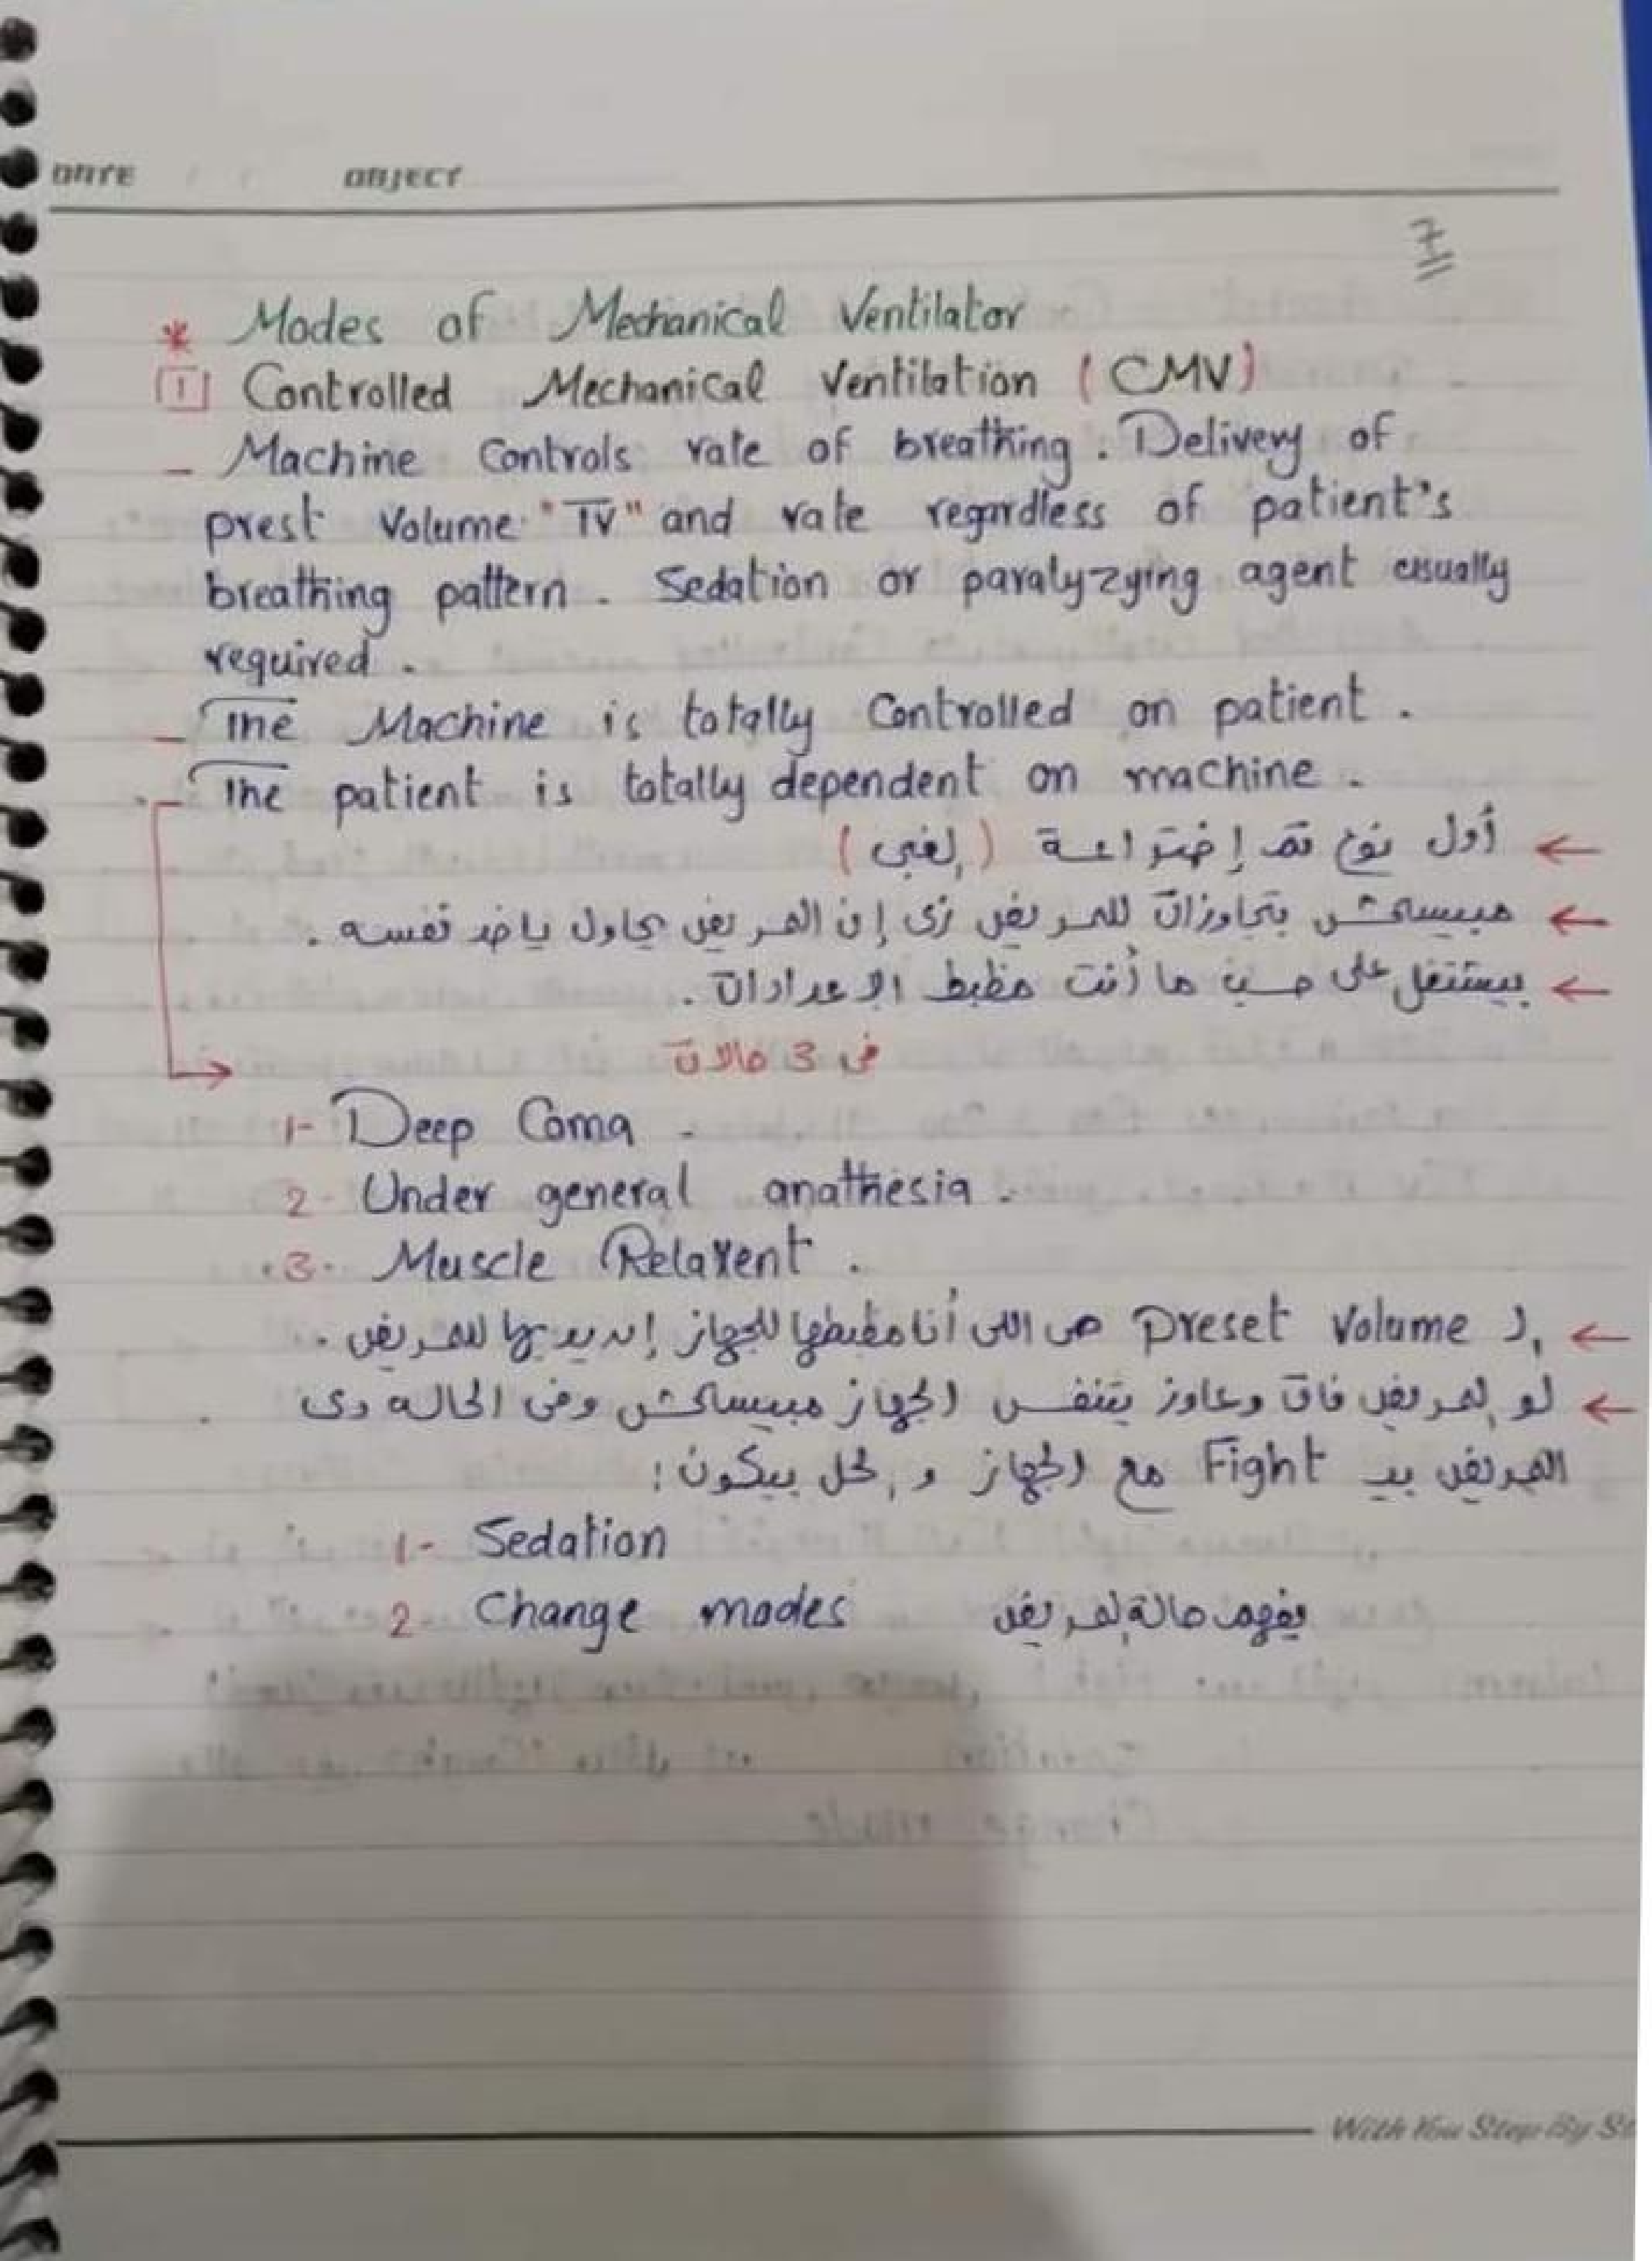 DATE / / OBJECT
7
* Modes of Mechanical Ventilator
1 Controlled Mechanical Ventilation (CMV)
- Machine Controls rate of breathing. Delivery of
prest Volume "TV" and rate regardless of patient's
breathing pattern. Sedation or paralyzying agent usually
required.
- The Machine is totally Controlled on patient.
- The patient is totally dependent on machine.
← أول نوع تم إختراعة (الغبى)
← مبيسمحش بتجاوزات للمريض زى إن المريض يحاول ياخد نفسه.
← بيشتغل على حسب ما أنت مظبط الإعدادات.
فى 3 حالات
1- Deep Coma.
2- Under general anathesia.
3- Muscle Relaxent.
← الـ Preset Volume هى اللى أنا مظبطها للجهاز إنه يديها للمريض.
← لو المريض فاق وعاوز يتنفس الجهاز مبيسمحش وفى الحاله دى
المريض بيـ Fight مع الجهاز والحل بيكون:
1- Sedation
2- Change modes يفهم حالة المريض
With You Step By St